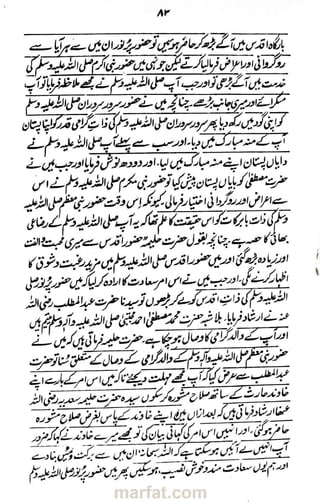 ۸۳
بارگاہ اقدس میں آگے بڑھ کر حاضر ہوئیں تو حضور پُر نور ان میں سے ہر ایک سے
روگردانی اور اعراض فرما لیا کرتے لیکن جونہی میں حضور نبی اکرم صلی اللہ علیہ وسلم کی
خدمت میں آگے بڑھی تو اور جب آپ صلی اللہ علیہ وسلم نے مجھے ملاحظہ فرمایا تو آپ
مسکرائے اور میری جانب بڑھے۔ چنانچہ میں نے حضور سرور سروران صلی اللہ علیہ وسلم
کو اپنی گود میں رکھ دیا پھر سرور سروران صلی اللہ علیہ وسلم کی ذات گرامی قدر کو اپنا پستان
آپ کے منہ مبارک میں دیا۔ اور سب سے پہلے آپ صلی اللہ علیہ وسلم نے
دایاں پستان اپنے منہ مبارک میں لیا۔ اور دودھ نوش فرمایا اور جب میں نے
حضرت مصطفیٰ کو بایاں پستان پیش کیا تو حضور نبی مکرم صلی اللہ علیہ وسلم نے اس
سے اعراض اور روگردانی اختیار فرمائی۔ کیونکہ اس وقت حضور نبی معظم صلی اللہ علیہ
وسلم کی ذات بابرکات کو اس حقیقت کا علم تھا کہ یہ آپ صلی اللہ علیہ وسلم کے رضاعی
بھائی کا حصہ ہے۔ چنانچہ بقول حضرت حلیمہ حضور اقدس سے میری محبت و الفت
اور زیادہ بڑھ گئی اور میں حضور اقدس صلی اللہ علیہ وسلم میں مزید رغبت و شوق کا
اظہار کرنے لگی۔ اور جب میں نے اس امر سعادت کا ارادہ کر لیا کہ میں حضور پُر نور صلی
اللہ علیہ وسلم کی ذات اقدس کو لے کر چلوں تو سیدنا حضرت عبدالمطلب رضی اللہ
عنہ نے ارشاد فرمایا۔ بلاشبہ حضرت محمد مصطفیٰ احمد مجتبیٰ صلی اللہ علیہ وآلہ وسلم یتیم ہیں
اور آپ کے والد گرامی کا وصال ہو چکا ہے۔ حضرت حلیمہ فرماتی ہیں کہ میں نے
حضور نبی معظم صلی اللہ علیہ وآلہ وسلم کے والد گرامی کے وصال کے متعلق سنا تو حضرت
عبدالمطلب سے عرض کیا کہ آپ مجھے مہلت دیجئے تاکہ میں اس امر کے بارے اپنے
خاوند حارث کے ساتھ صلاح مشورہ کر سکوں سیدہ حضرت حلیمہ سعدیہ رضی اللہ
عنہا ارشاد فرماتی ہیں کہ بعد ازاں میں اپنے خاوند کے پاس بغرض صلاح مشورہ
حاضر ہو گئی۔ اور انہیں اس امر کی کہانی بیان کی تو مجھے میرے خاوند نے کہا کہ ضرور
آپ انہیں لے آئیں ہو سکتا ہے کہ اللہ سبحانہ ان میں سے برکت و فیض بنا دے
اور ہم یوں سعادت مند و خوش نصیب ہو سکیں پھر میں حضور پُر نور صلی اللہ علیہ وسلم
marfat.com